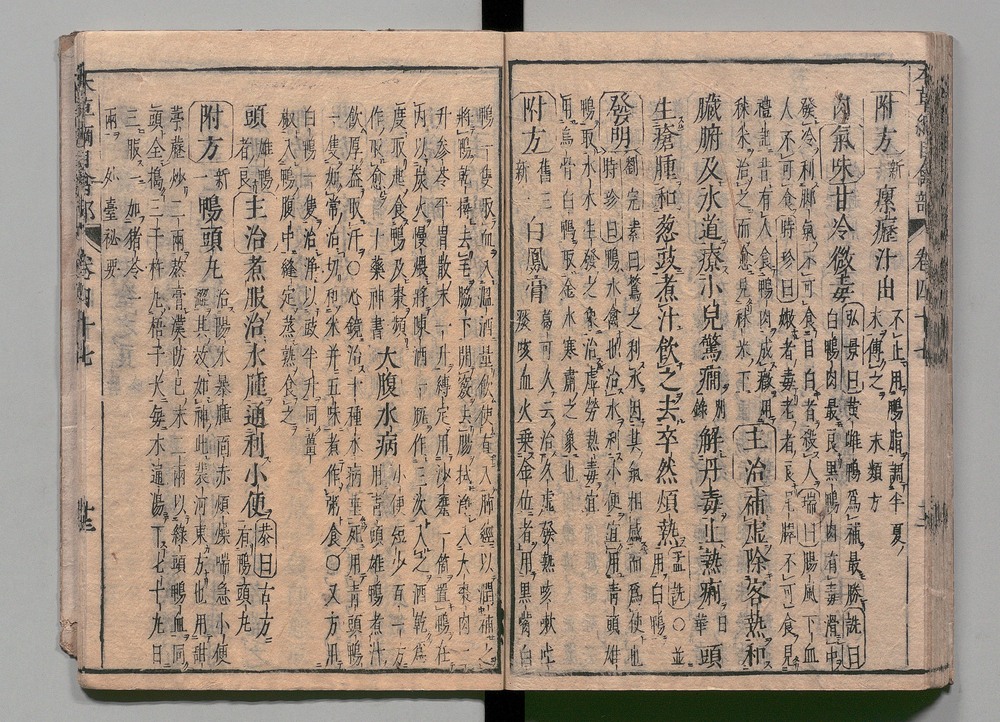 附方 新 瘰癧汁出 不止用鴨脂調半夏
末傅之 永類方
肉氣味甘冷微毒 弘景曰黃雌鴨爲補最勝詵曰
白鴨肉最良黑鴨肉有毒滑中
發冷利脚氣不可食目白者殺人瑞曰腸風下血
人不可食時珍曰嫩者毒老者良尾臎不可食見
禮記昔有人食鴨肉成癥用
秫米治之而愈見秫米下 主治補虛除客熱和
臟腑及水道療小兒驚癇別錄 解丹毒止熱痢日華 頭
生瘡腫和葱豉煮汁飲之去卒然煩熱孟詵○並用白鴨
發明 劉完素曰鶩之利水因其氣相感而爲使也
時珍曰鴨水禽也治水利小便宜用靑頭雄
鴨取水木生發之象治虛勞熱毒宜
用烏骨白鴨取金水寒肅之象也
附方 舊三新一 白鳳膏 葛可久云治久虛發熱咳嗽吐
痰咳血火乘金位者用黑嘴白
鴨一隻取血入溫酒量飲使直入肺經以潤補之
將鴨乾撏去毛脇下開竅去腸拭淨入大棗肉二
升參苓平胃散末一升縛定用沙甕一箇置鴨在
內以炭火慢煨將陳酒一瓶作三次入之酒乾爲
度取起食鴨及棗頻
作取愈十藥神書 大腹水病 小便短少百一方
用靑頭雄鴨煮汁
飲厚蓋取汗○心鏡治十種水病垂死用靑頭鴨
一隻治如常治切和米并五味煮作粥食○又方用
白鴨一隻治淨以豉半升同薑
椒入鴨腹中縫定蒸熟食之
頭 雄鴨者良 主治煮服治水腫通利小便 恭曰古方有鴨頭丸
附方 新一 鴨頭丸 治陽水暴腫面赤煩燥喘急小便
澀其效如神此裴河東方也用甜
葶藶炒二兩熬膏漢防已末二兩以綠頭鴨血同
頭全搗三千杵丸梧子大每木通湯下七十丸日
三服一加猪苓一
兩 外臺秘要
本草綱目禽部 卷四十七 廿三